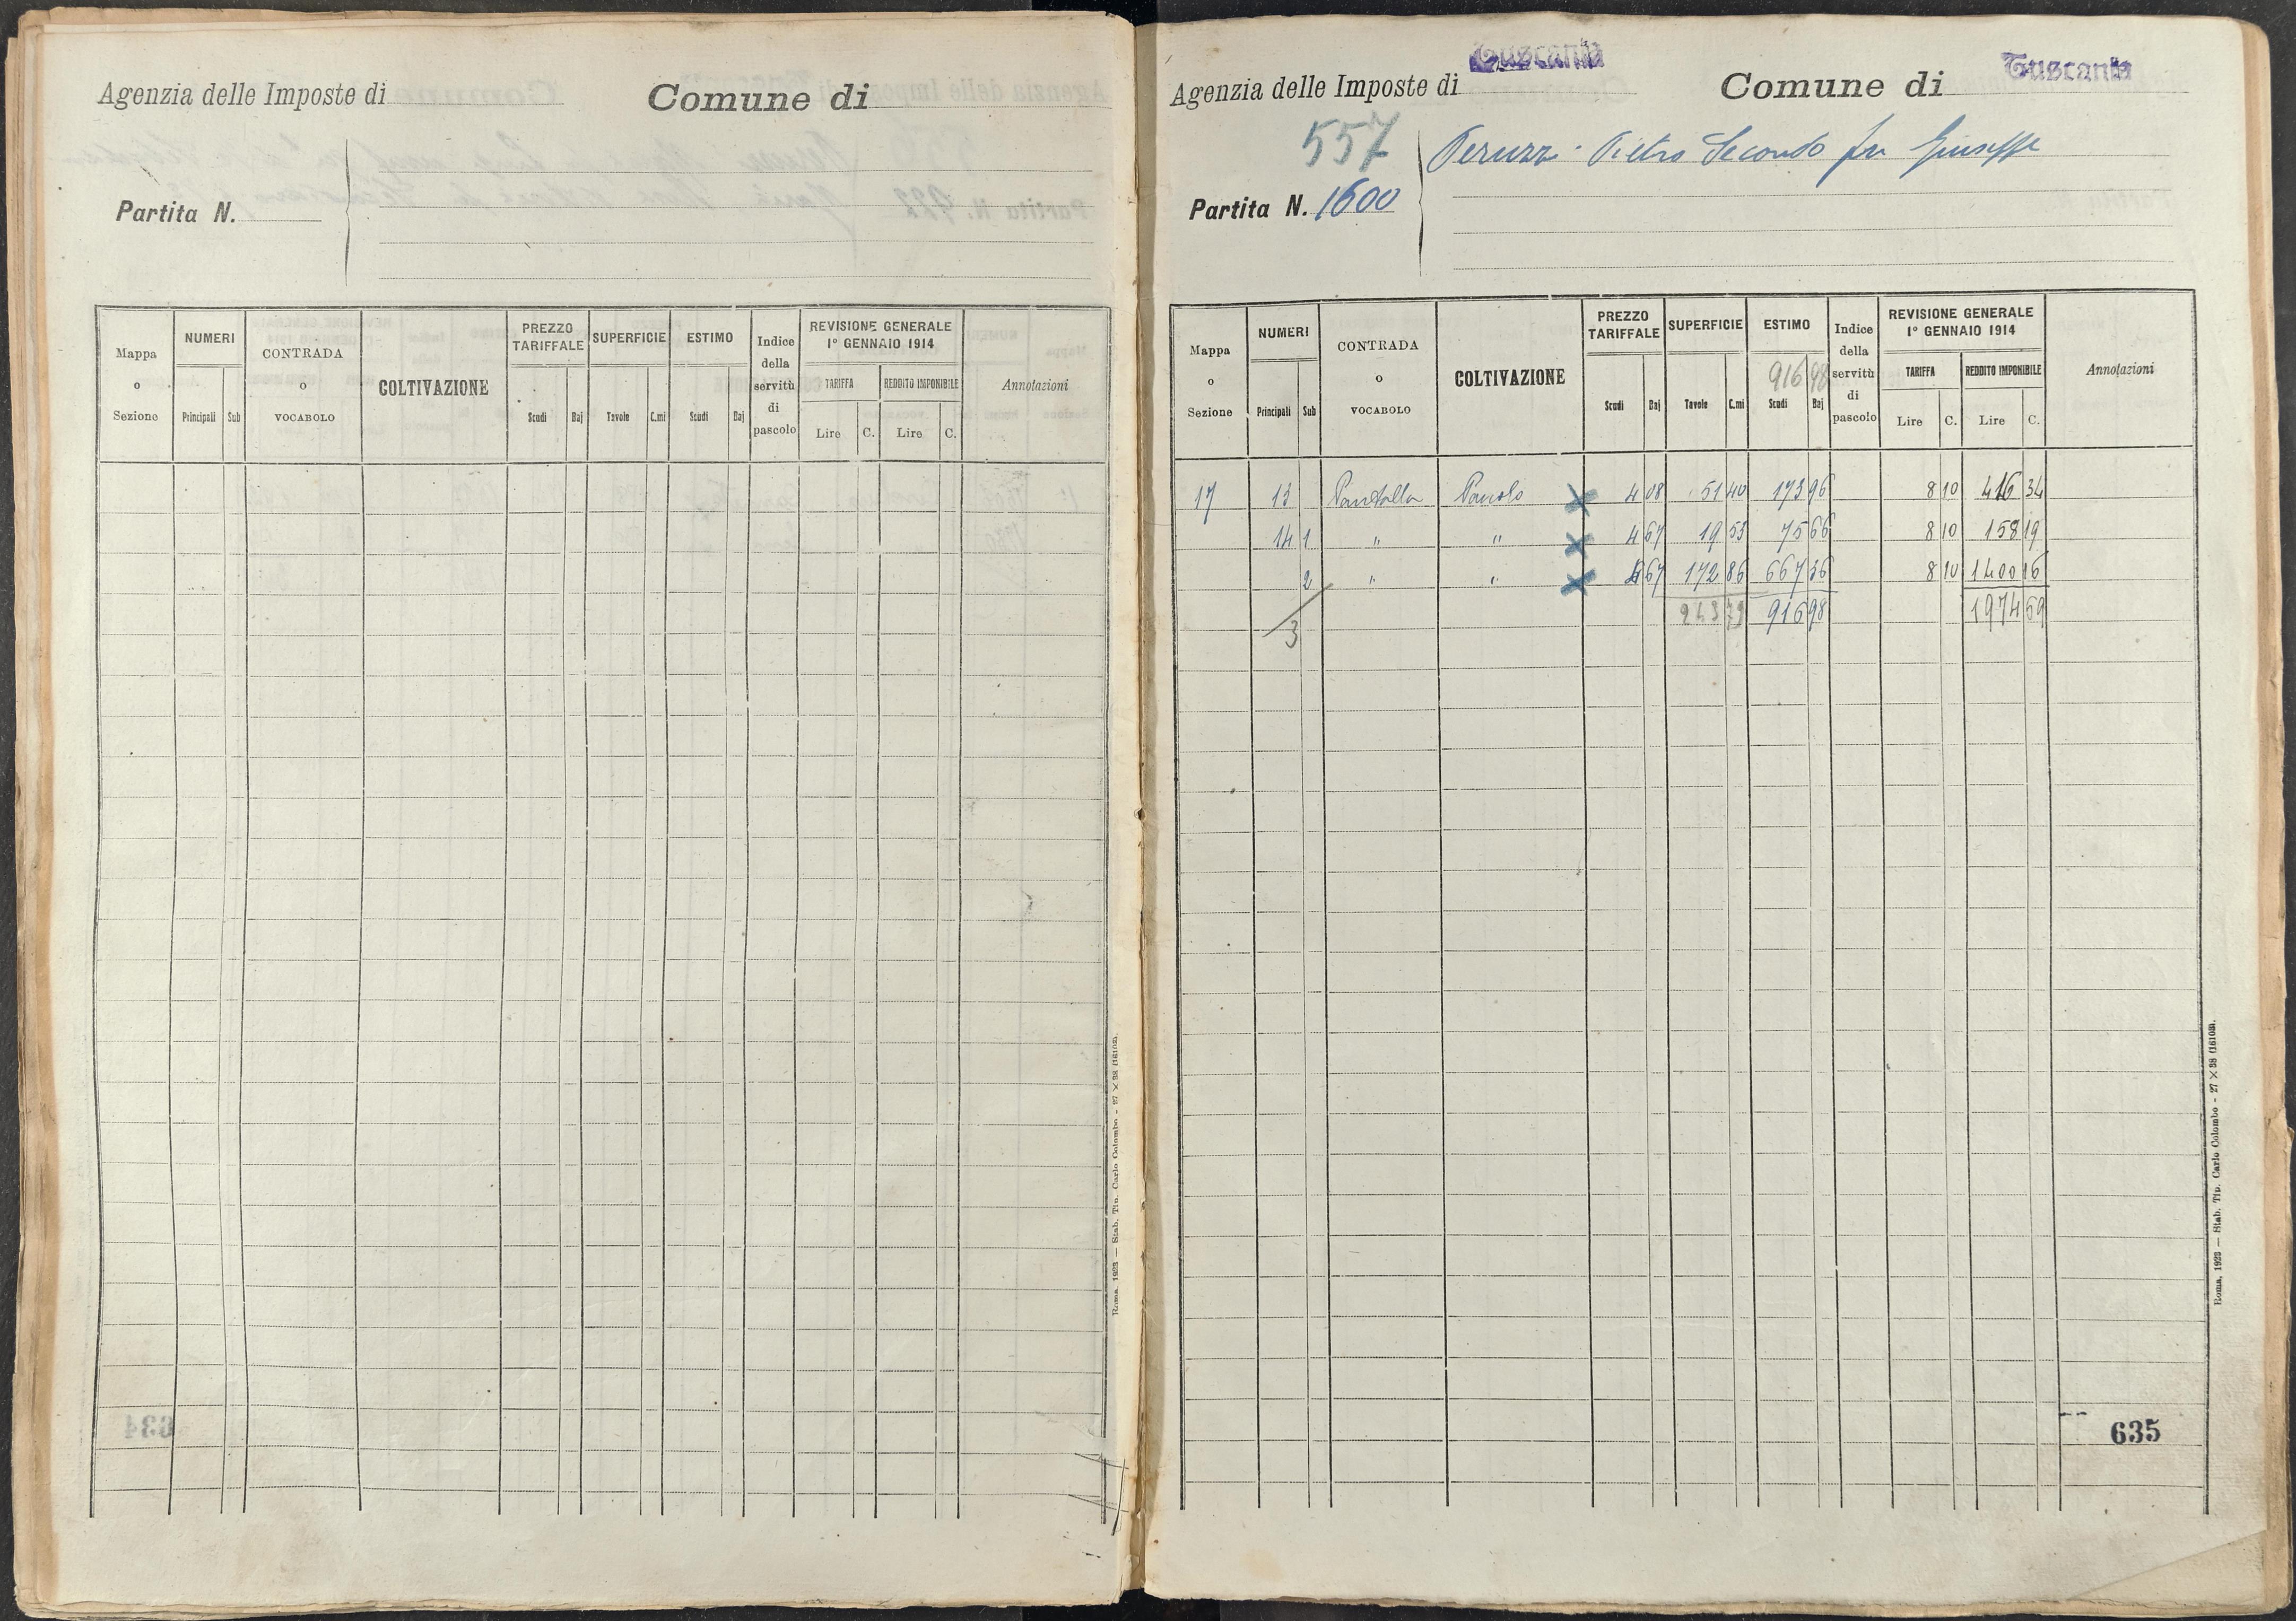 Agenzia delle Imposte di
Comune di
Partita N.
Mappa o Sezione
NUMERI
Principali Sub
CONTRADA o VOCABOLO
COLTIVAZIONE
PREZZO TARIFFALE
Scudi Baj
SUPERFICIE
Tavole C.mi
ESTIMO
Scudi Baj
Indice della servitù di pascolo
REVISIONE GENERALE
1° GENNAIO 1914
TARIFFA REDDITO IMPONIBILE
Lire C. Lire C.
Annotazioni
Roma, 1923 — Stab. Tip. Carlo Colombo - 27 × 38 (16103).
Agenzia delle Imposte di Tuscania
Comune di Tuscania
557
Partita N. 1600
Peruzzi Pietro Secondo fu Giuseppe
Mappa o Sezione
NUMERI
Principali Sub
CONTRADA o VOCABOLO
COLTIVAZIONE
PREZZO TARIFFALE
Scudi Baj
SUPERFICIE
Tavole C.mi
ESTIMO
916 98
Scudi Baj
Indice della servitù di pascolo
REVISIONE GENERALE
1° GENNAIO 1914
TARIFFA REDDITO IMPONIBILE
Lire C. Lire C.
Annotazioni
17 13 Pascolo X 4 08 51 40 173 96 8 10 416 34
14 1 " " X 4 67 19 53 75 66 8 10 158 19
2 " " X 4 67 172 86 667 36 8 10 1400 16
3 243 79 916 98 1974 69
635
Roma, 1923 — Stab. Tip. Carlo Colombo - 27 × 38 (16103).